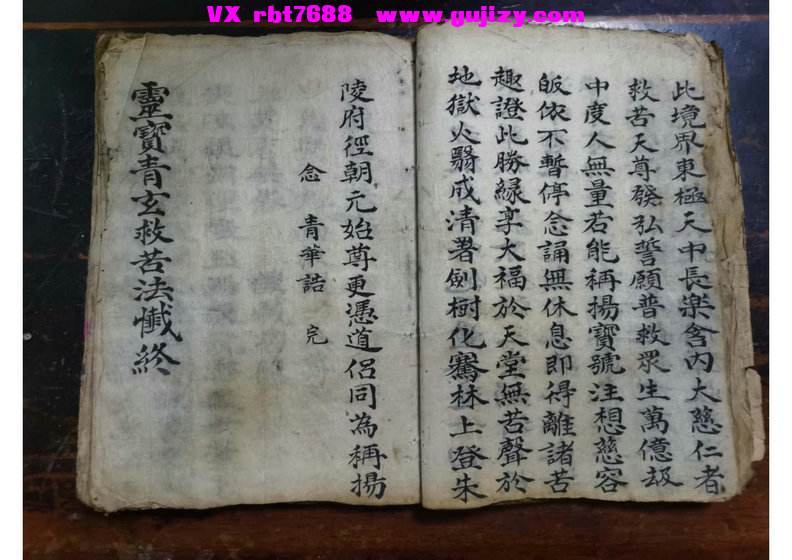 VX rbt7688 www.gujizy.com
此境界東極天中長楽舍内大慈仁者
救苦天尊發弘誓願普救眾生萬億刼
中度人無量若能稱揚寶號注想慈容
皈依不暫停念誦無休息即得離諸苦
趣證此勝緣享大福於天堂無苦聲於
地獄火翳成清署劍樹化騫林上登朱
陵府徑朝元始尊更憑道侶同為稱揚
念青華誥完
靈寶青玄救苦法懺終